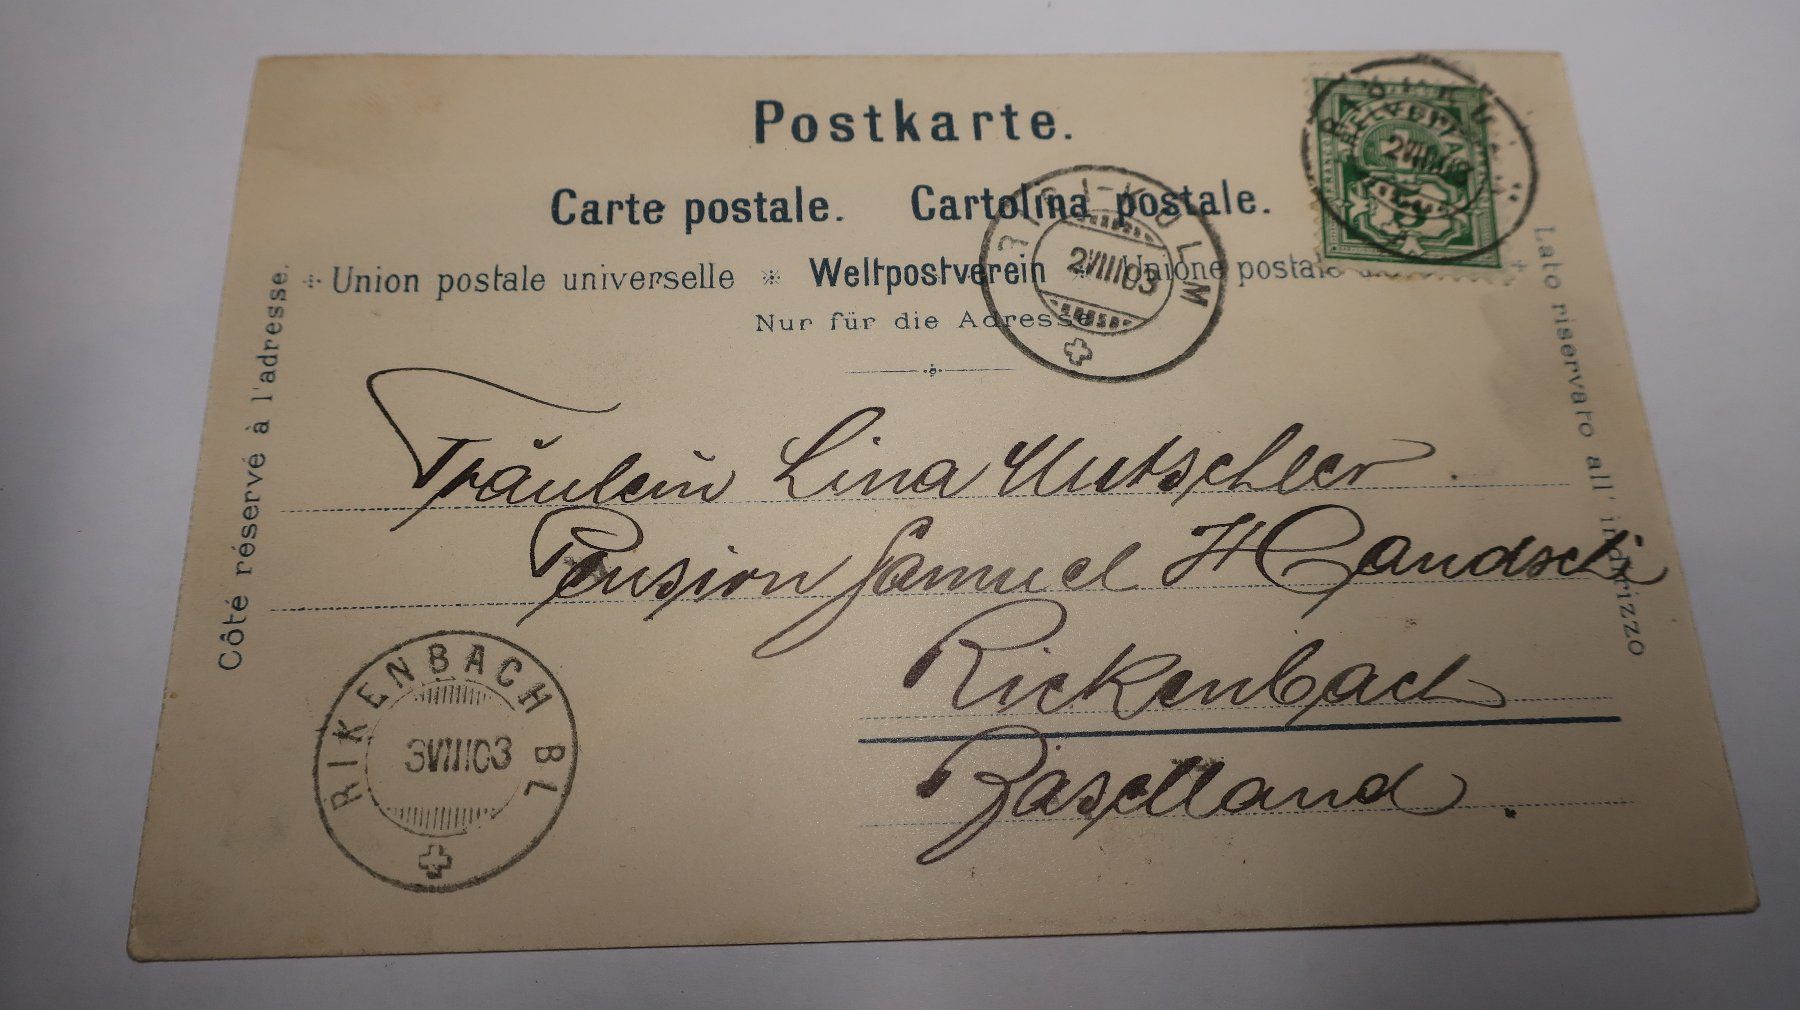 Postkarte.
Carte postale. Cartolina postale.
Union postale universelle * Weltpostverein * Unione postale
Nur für die Adresse
Côté réservé à l'adresse.
Lato riservato all' indirizzo
HELVETIA
2VIII03
RIGI-KULM
2VIII03
Fräulein Lina Mutschler.
Pension Samuel Handschi
Rickenbach
Baselland.
RIKENBACH BL
3VIII03